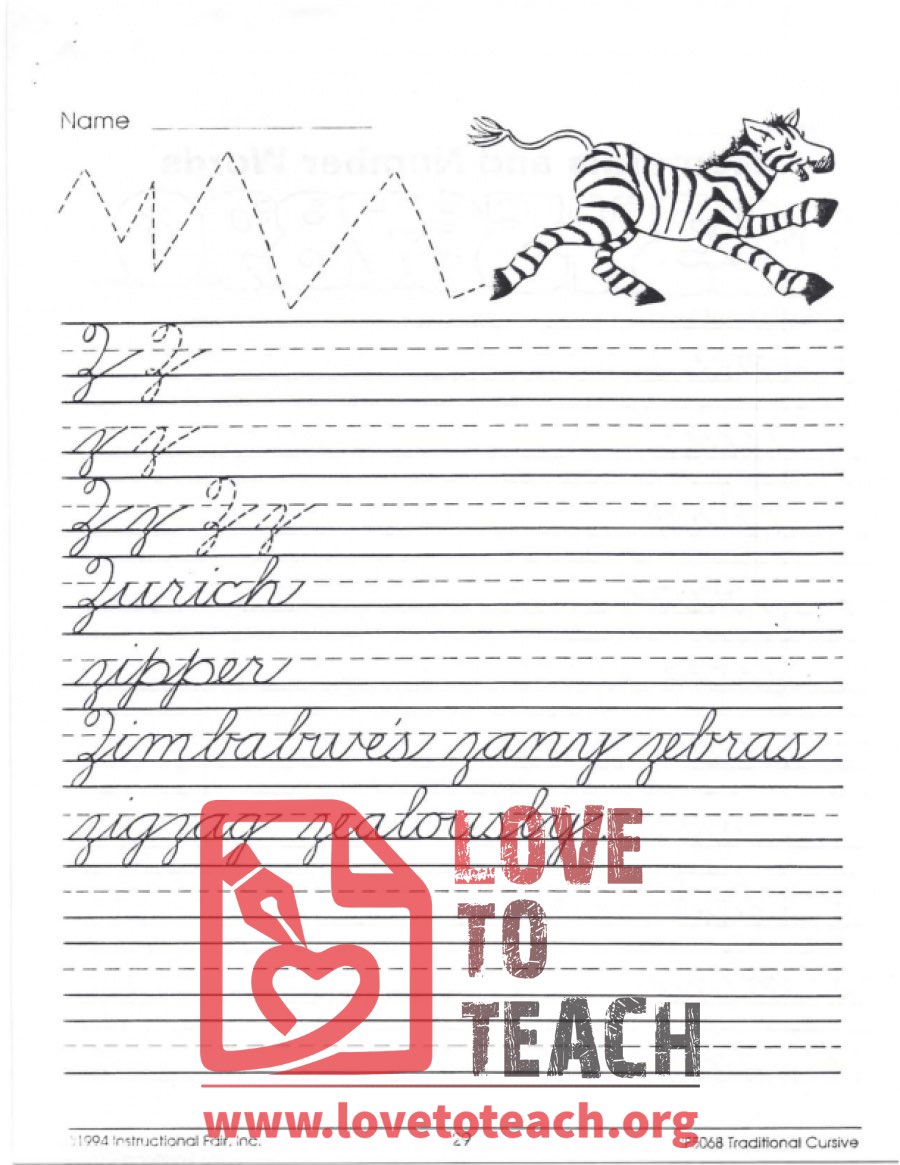 Name
Z Z
z z
Zz Zz
Zurich
zipper
Zimbabwe's zany zebras
zigzag zealously.
LOVE
TO
TEACH
www.lovetoteach.org
©1994 Instructional Fair, Inc. 29 IF5068 Traditional Cursive